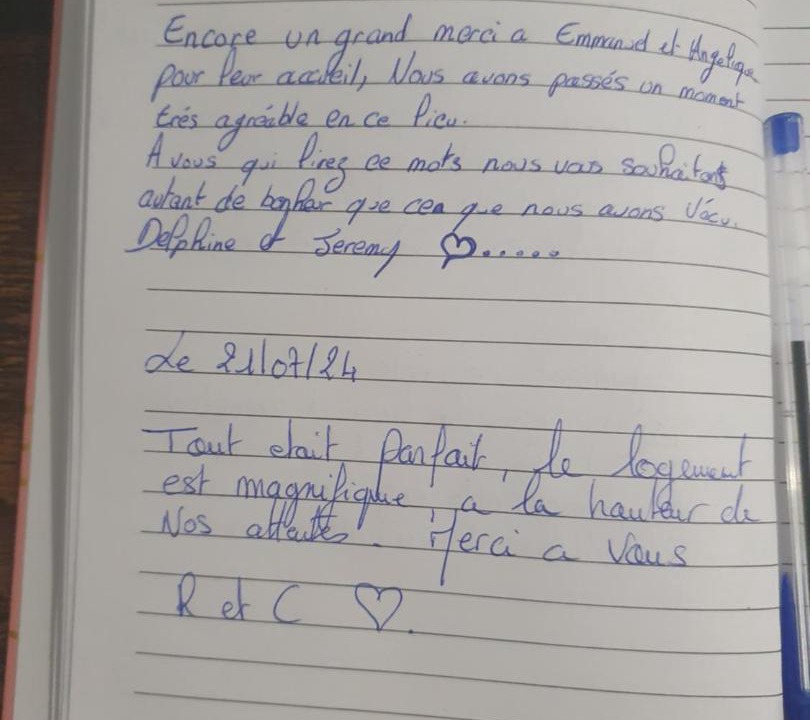 Encore un grand merci a Emmanuel et Angelique
pour leur accueil, Nous avons passés un moment
très agréable en ce lieu.
A vous qui lirez ce mots nous vous souhaitons
autant de bonheur que ceu que nous avons Vécu.
Delphine et Jeremy ♡.....
Le 21/07/24
Tout etait Parfait, le logement
est magnifique, a la hauteur de
Nos attentes. Merci a Vous
R et C ♡.